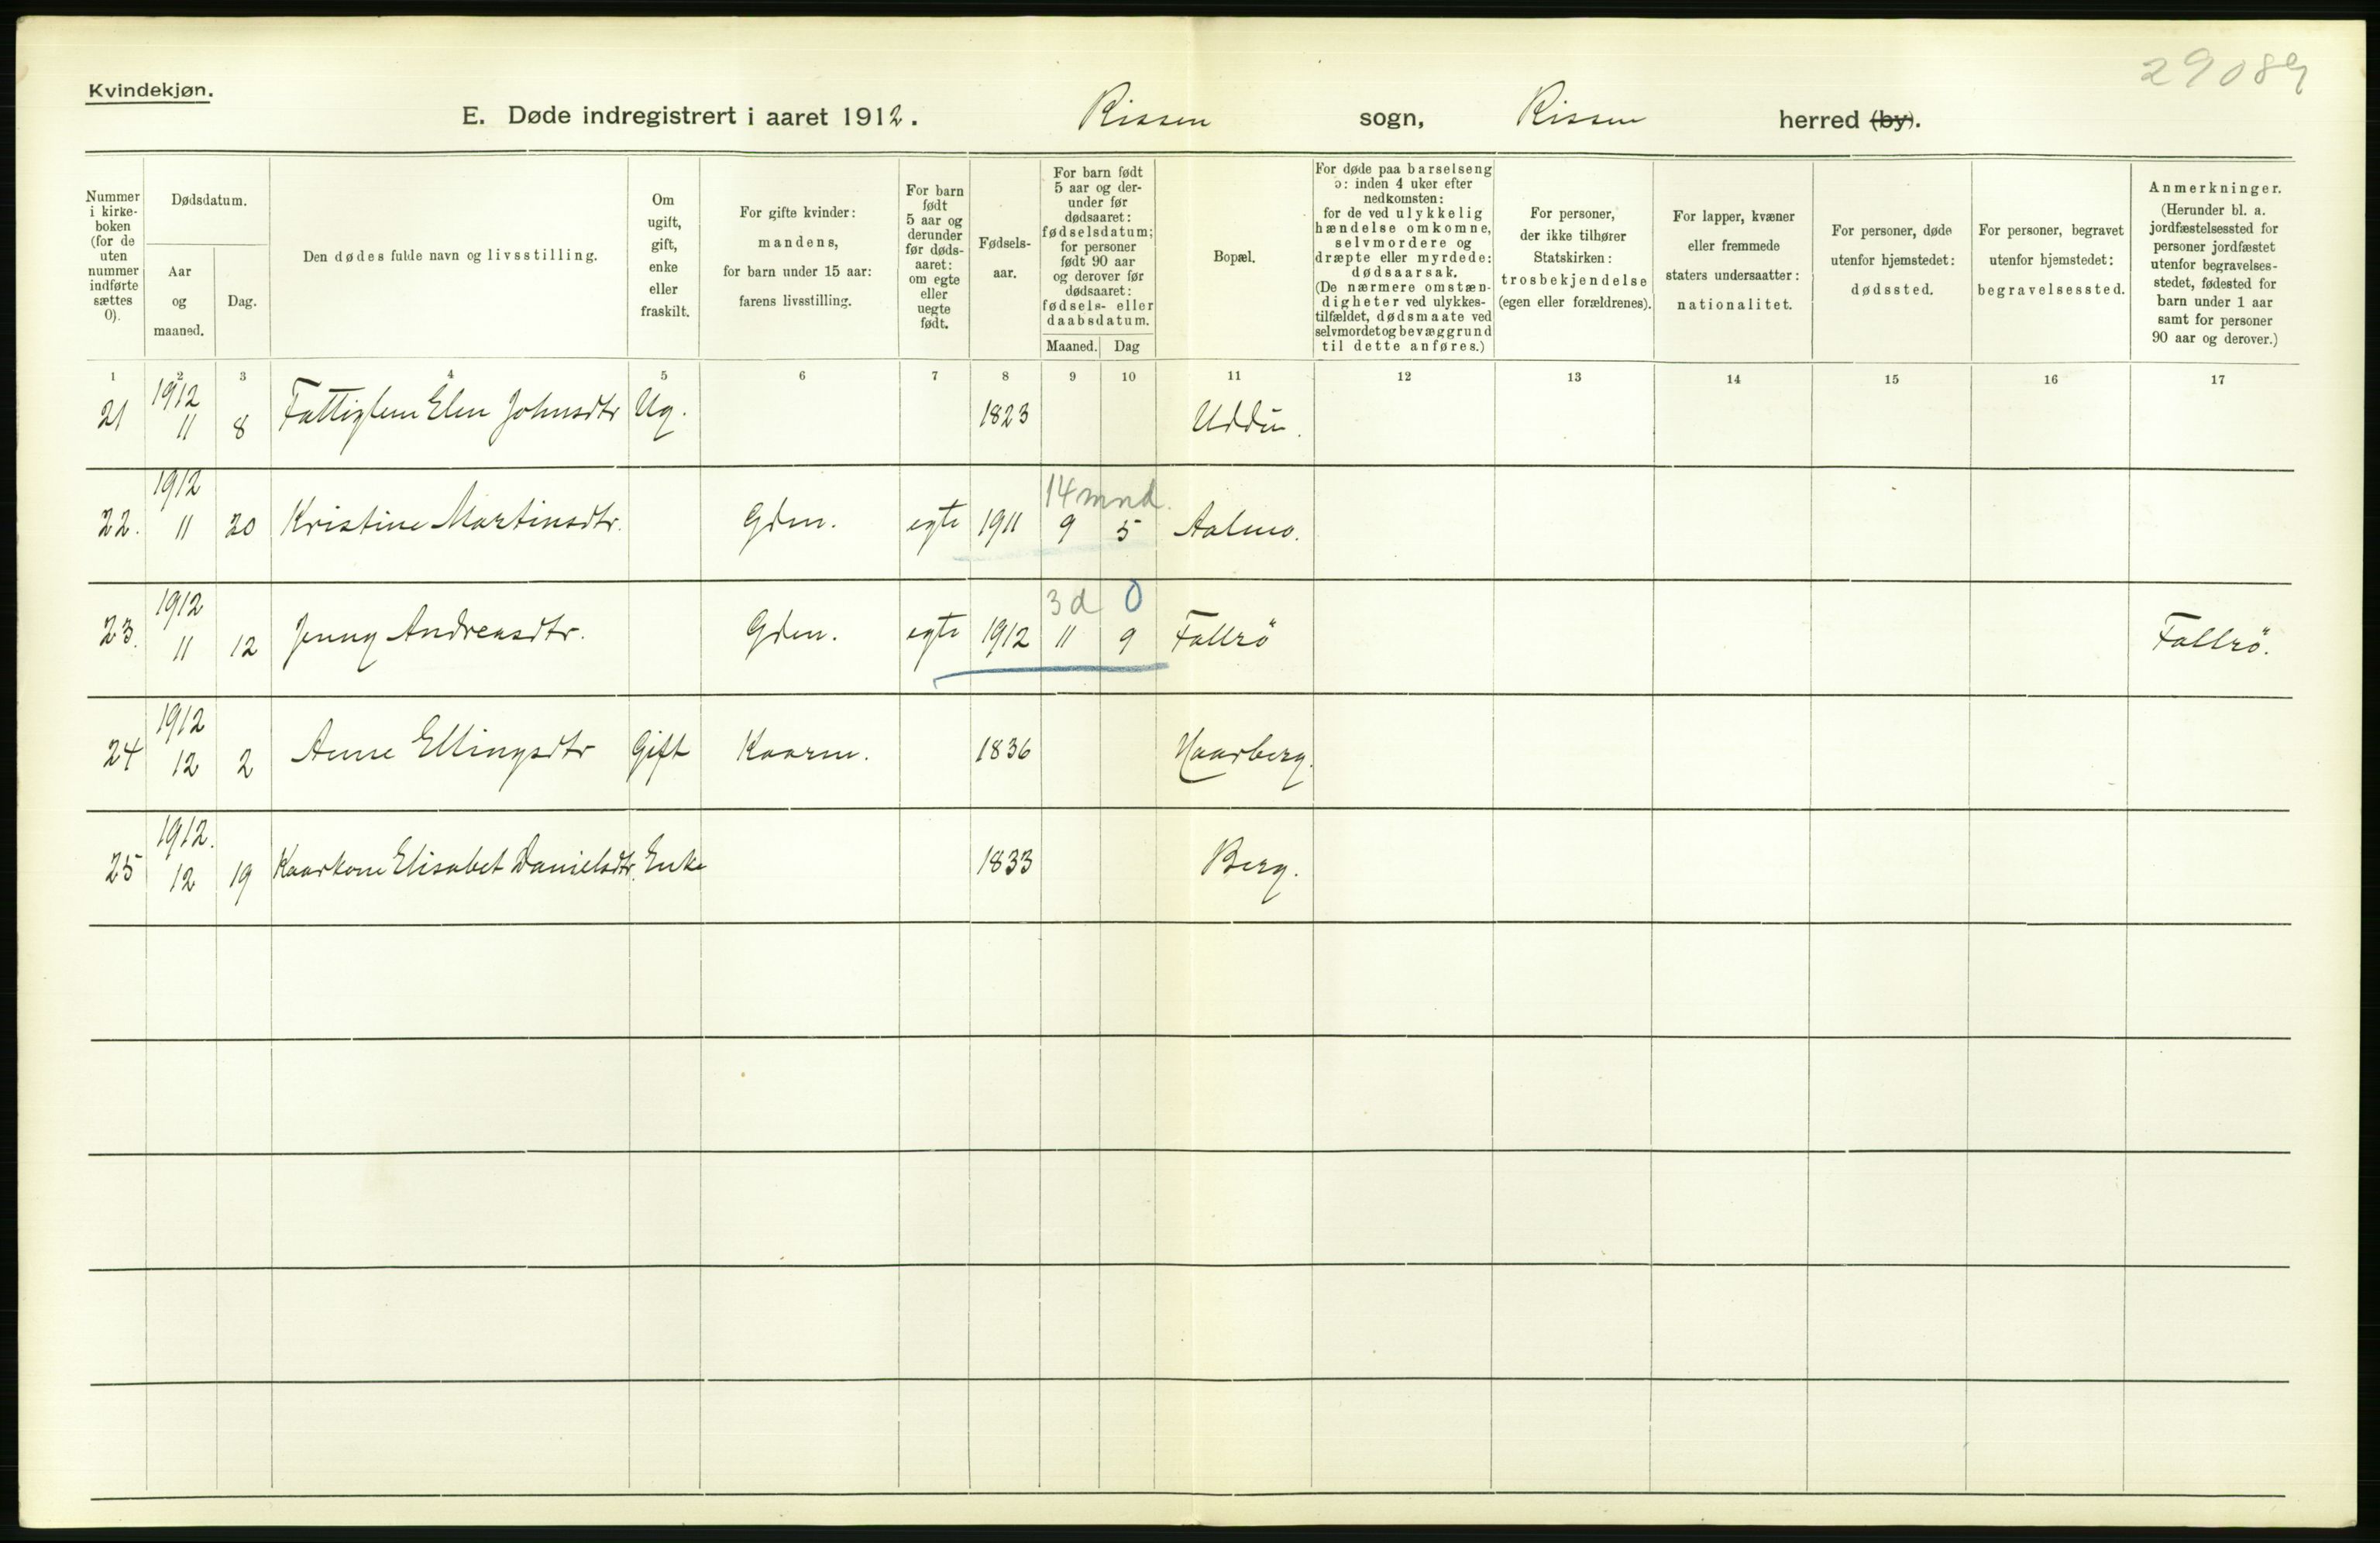 29089
Kvindekjøn.
E. Døde indregistrert i aaret 1912. Rissen sogn, Rissen herred (by).
Nummer i kirke- boken (for de uten nummer indførte sættes 0).
Dødsdatum.
Aar og maaned.
Dag.
Den dødes fulde navn og livsstilling.
Om ugift, gift, enke eller fraskilt.
For gifte kvinder: mandens, for barn under 15 aar: farens livsstilling.
For barn født 5 aar og derunder før døds- aaret: om egte eller uegte født.
Fødsels- aar.
For barn født 5 aar og der- under før dødsaaret: fødselsdatum; for personer født 90 aar og derover før dødsaaret: fødsels- eller daabsdatum.
Maaned. Dag
Bopæl.
For døde paa barselseng ɔ: inden 4 uker efter nedkomsten: for de ved ulykkelig hændelse omkomne, selvmordere og dræpte eller myrdede: dødsaarsak. (De nærmere omstæn- digheter ved ulykkes- tilfældet, dødsmaate ved selvmordet og bevæggrund til dette anføres.)
For personer, der ikke tilhører Statskirken: trosbekjendelse (egen eller forældrenes).
For lapper, kvæner eller fremmede staters undersaatter: nationalitet.
For personer, døde utenfor hjemstedet: dødssted.
For personer, begravet utenfor hjemstedet: begravelsessted.
Anmerkninger. (Herunder bl. a. jordfæstelsessted for personer jordfæstet utenfor begravelses- stedet, fødested for barn under 1 aar samt for personer 90 aar og derover.)
1 2 3 4 5 6 7 8 9 10 11 12 13 14 15 16 17
21 1912 11 8 Fattiglem Elen Johnsdtr Ug. 1823
22. 1912 11 20 Kristine Martinsdtr. Gdm. egte 1911 14 mnd. 9 5 Aalmo.
23. 1912 11 12 Jenny Andreasdtr. Gdm. egte 1912 3 d 0 11 9 Fallrö Fallrö.
24 1912 12 2 Anne Ellingsdtr Gift Kaarm. 1836 Haarberg.
25 1912. 12 19 Kaarkone Elisabet Danielsdtr. Enke 1833 Berg.